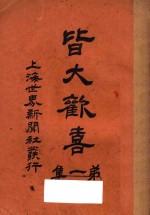 皆大歡喜
第一集
上海世界新聞社發行